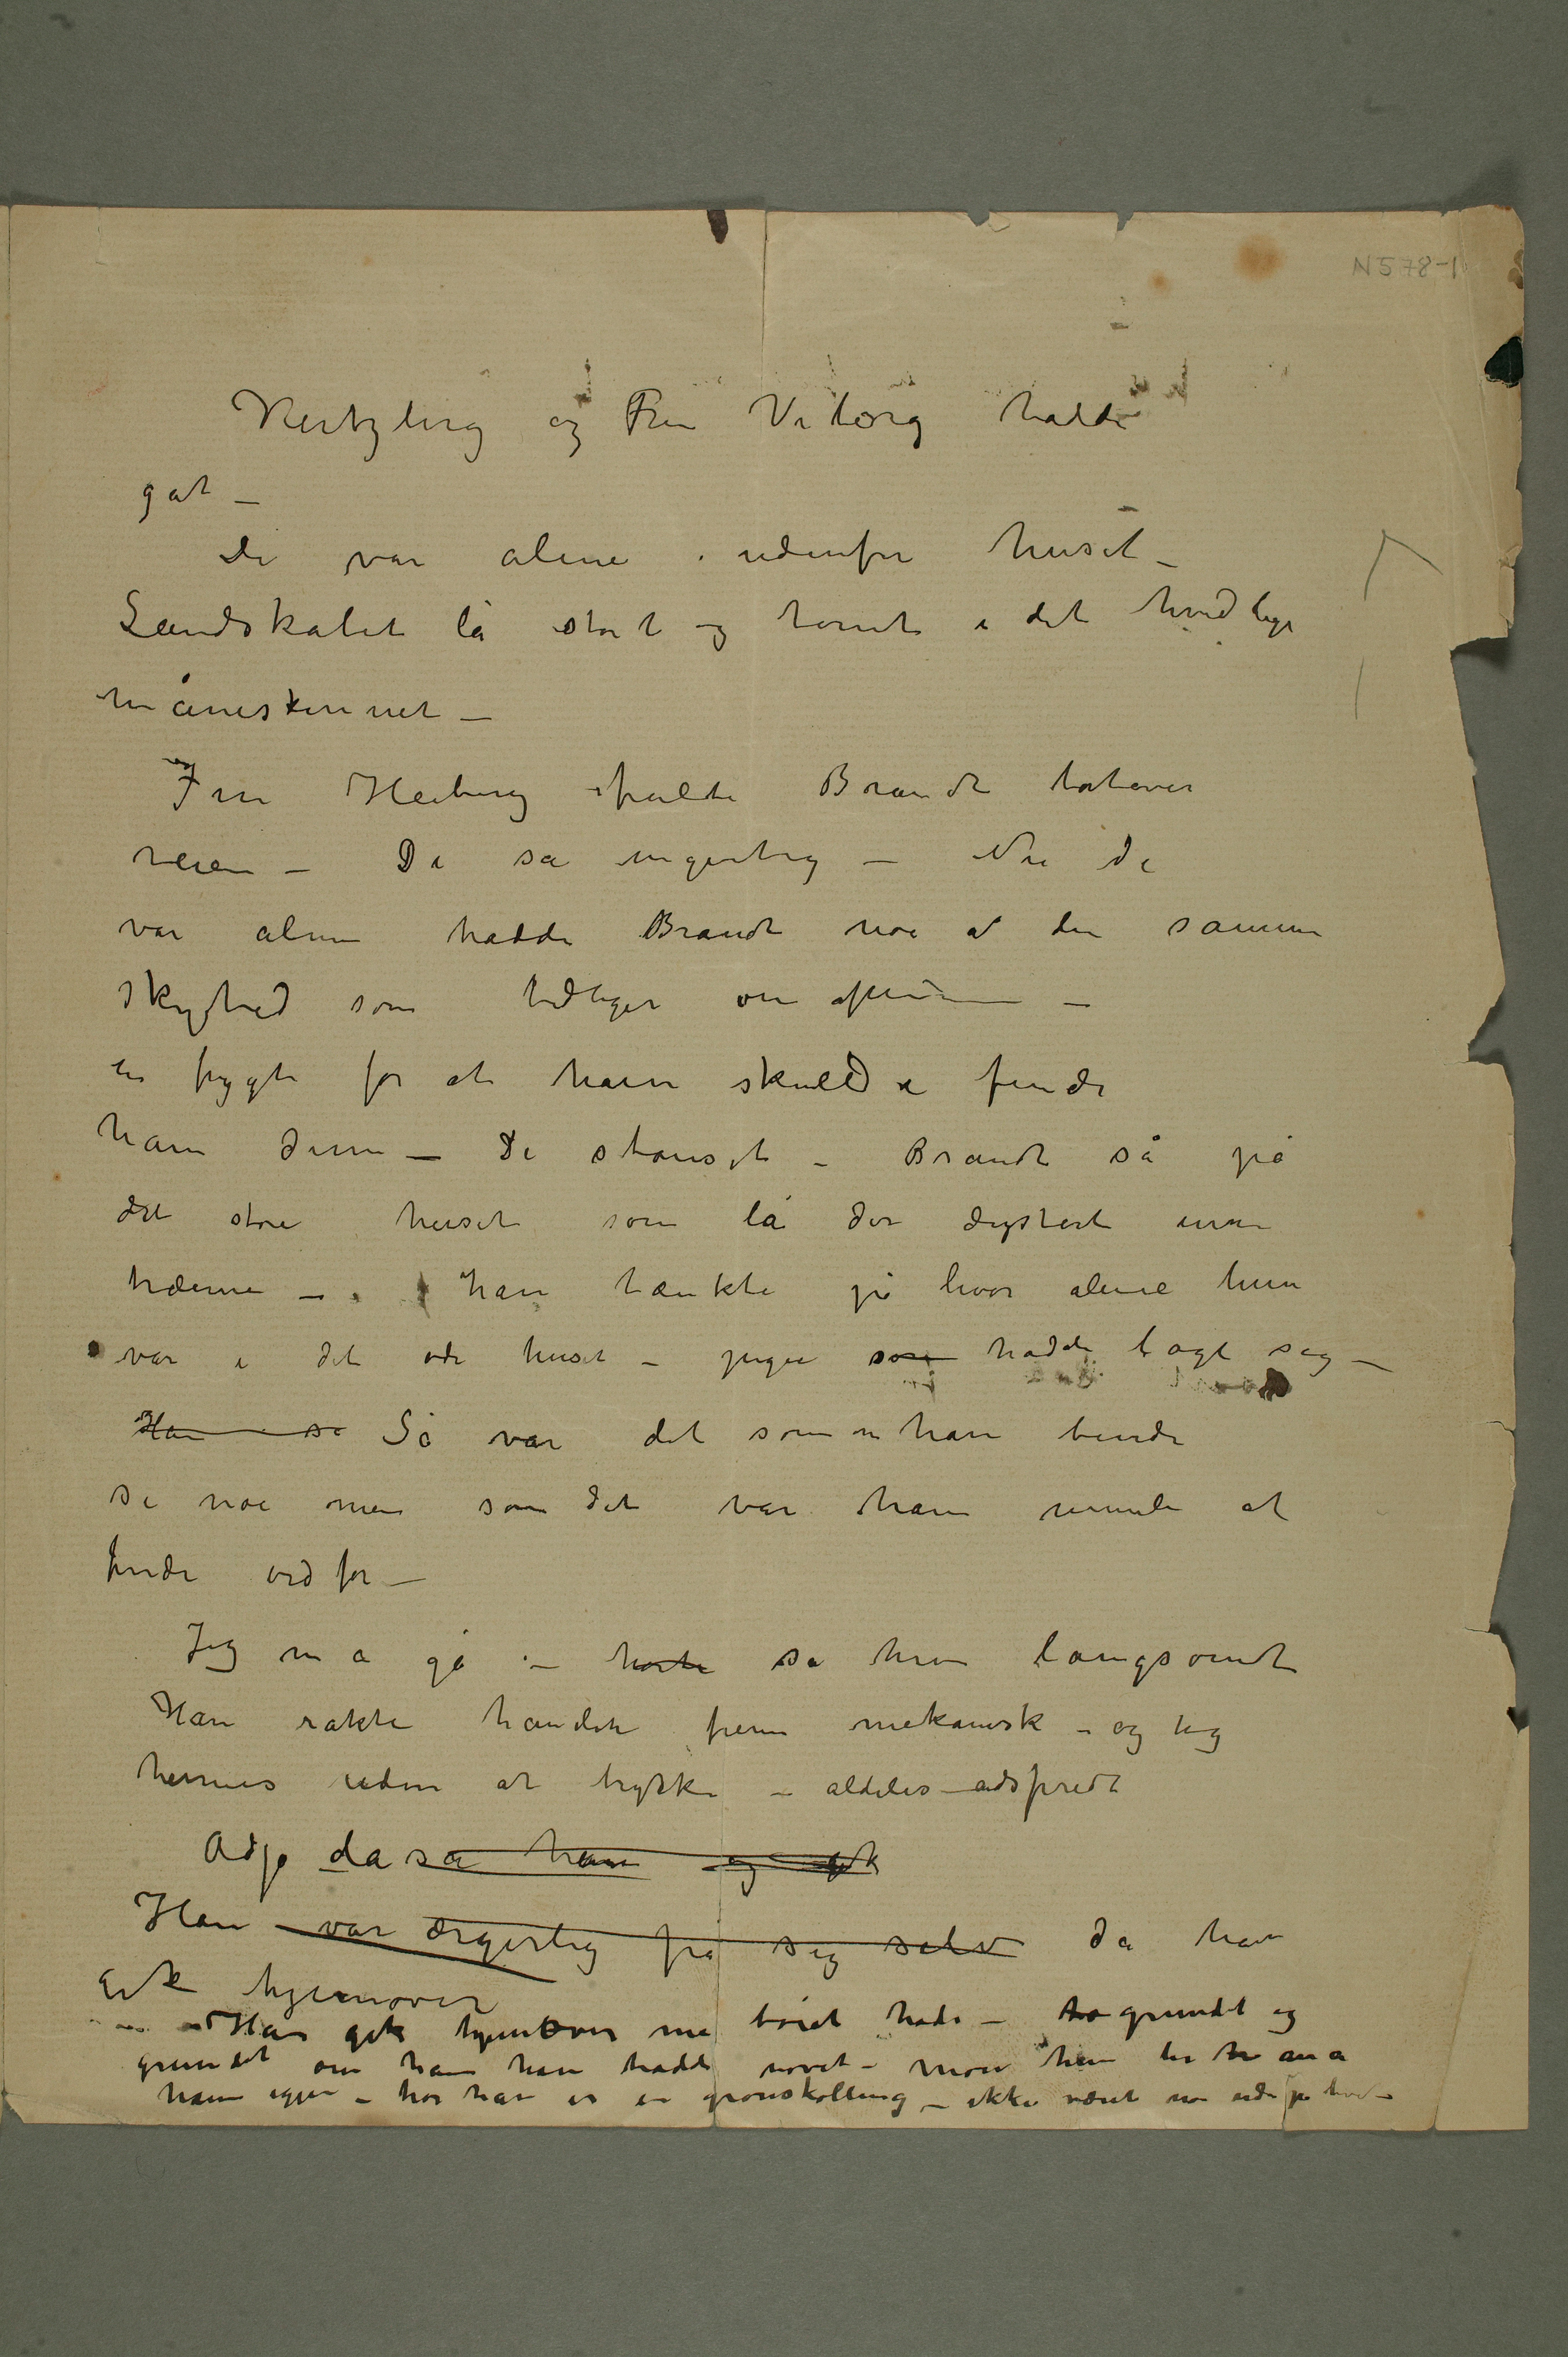 N 578-1
Hertzberg og Fru Viborg hadde
gåt –
De var alene udenfor huset –
Landskabet lå stort og tomt i det hvidlige
måneskinnet –
Fru Heiberg fulte Brandt bortover
veien – De sa ingenting – Nu de
var alene hadde Brandt noe a den samme
skyhed som tidliger om aftenen –
en frygt for at han skulde finde
ham dum – De stanset – Brandt så på
det store huset som lå der dystert
træerne – han tænkte på hvor alene hun
var i det øde huset – pigen som hadde lagt seg –
Han sa Så var det som om han burde
si noe men som det var ham umuli at
finde ord for –
Jeg må gå – hørte sa hun langsomt
Han rakte hånden frem mekanisk – og tog
hennes uden at trykke – aldeles adspredt
Adjø da sa han og gik
Han var ærgerlig på sig selv da han
gik hjemover
– Han gik hjemover me bøiet hode – grundet og
grundet om ham han hadde – mon hun ler a
ham igjen – hos har er en grønskolling – ikke været noe ude på